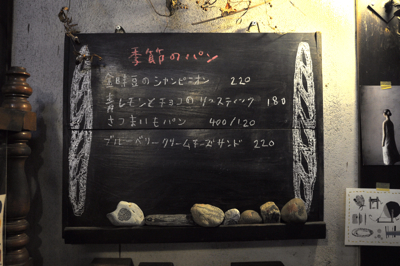 季節のパン
金時豆のシャンピニオン 220
青レモンとチョコのリュスティック 180
さつまいもパン 400/120
ブルーベリークリームチーズサンド 220